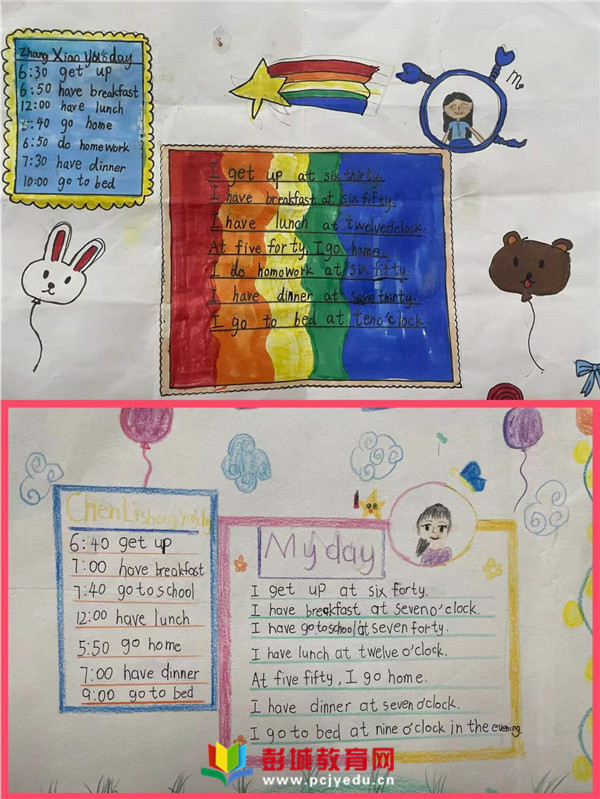 Zhang Xiao You's day
6:30 get up
6:50 have breakfast
12:00 have lunch
5:40 go home
6:50 do homework
7:30 have dinner
10:00 go to bed
I get up at six thirty.
I have breakfast at six fifty.
I have lunch at twelve o'clock.
At five forty, I go home.
I do homowork at six fifty.
I have dinner at seve thirty.
I go to bed at ten o'clock
Chen Lishong
6:40 get up
7:00 have breakfast
7:40 go to school
12:00 have lunch
5:50 go home
7:00 have dinner
9:00 go to bed
My day
I get up at six forty.
I have breakfast at seven o'clock.
I have go to school at seven forty.
I have lunch at twelve o'clock.
At five fifty, I go home.
I have dinner at seven o'clock.
I go to bed at nine o'clock in the evening.
彭城教育网
www.pcjyedu.cn